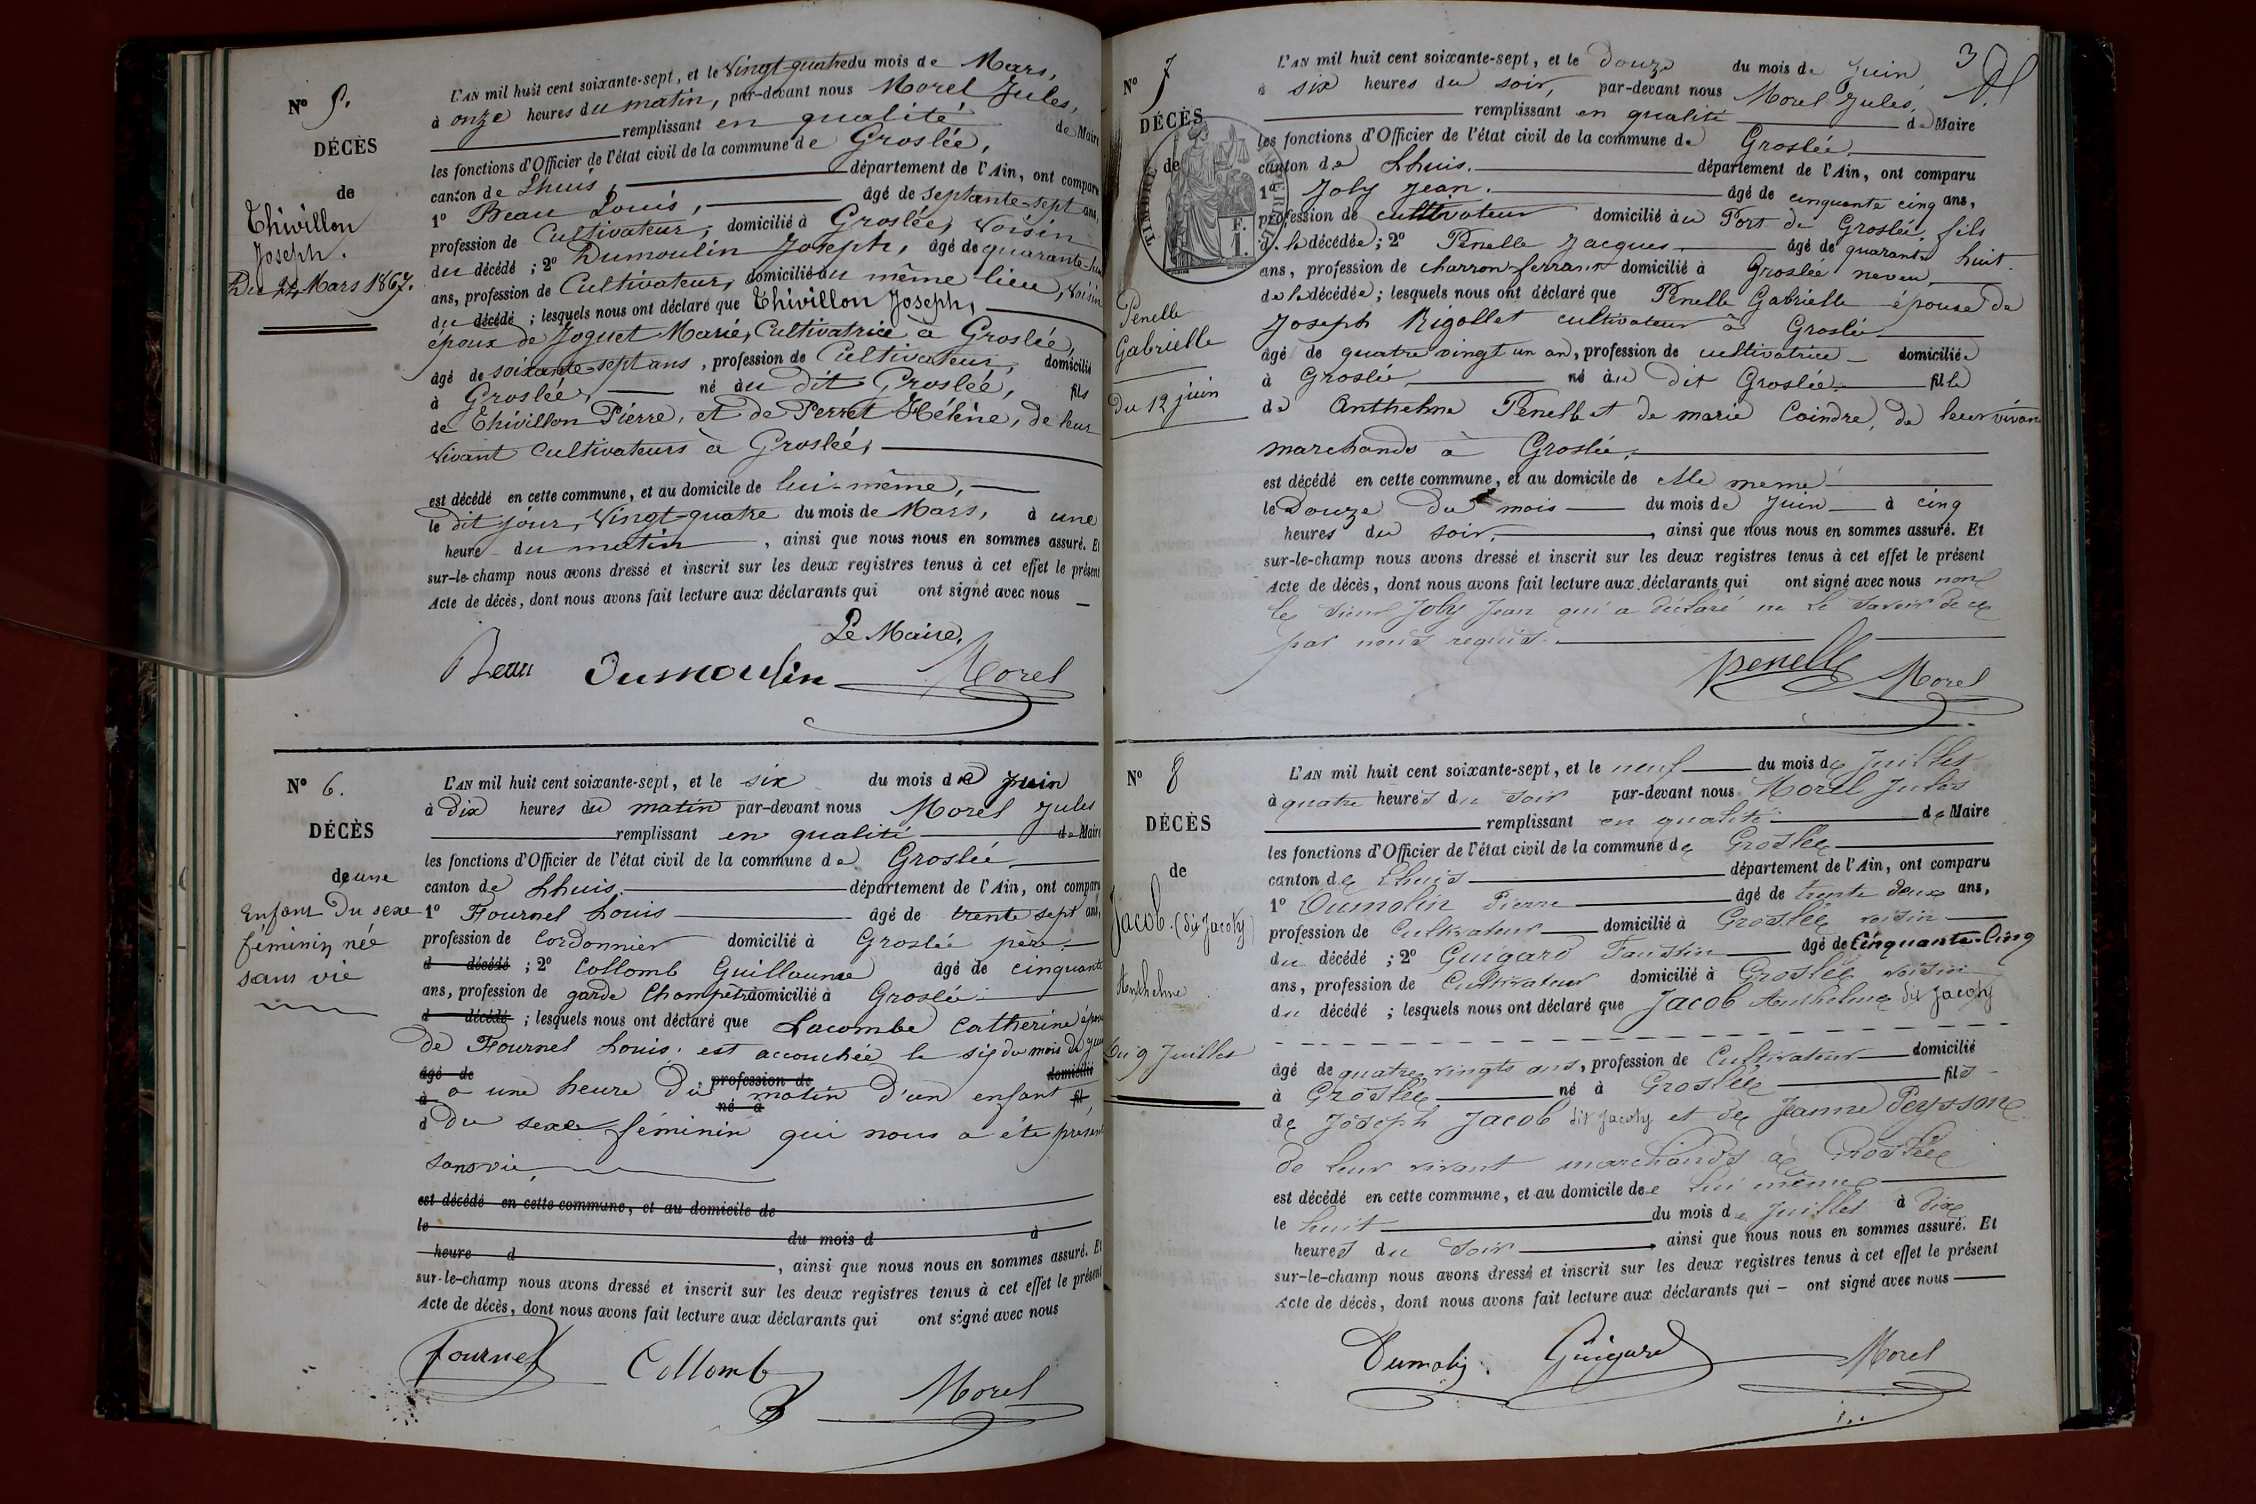 N° 5.
DÉCÈS
de
Thivillon
Joseph.
Du 24 Mars 1867.
L'AN mil huit cent soixante-sept, et le Vingt-quatre du mois de Mars,
à onze heures du matin, par-devant nous Morel Jules,
remplissant en qualité de Maire
les fonctions d'Officier de l'état civil de la commune de Groslée,
canton de Lhuis, département de l'Ain, ont comparu
1° Beau Louis, âgé de septante-sept ans,
profession de Cultivateur, domicilié à Groslée, Voisin
du décédé ; 2° Dumoulin Joseph, âgé de quarante-huit
ans, profession de Cultivateur, domicilié au même lieu, Voisin
du décédé ; lesquels nous ont déclaré que Thivillon Joseph,
époux de Joguet Marie, Cultivatrice à Groslée,
âgé de soixante-sept ans, profession de Cultivateur, domicilié
à Groslée, né au dit Groslée, fils
de Thivillon Pierre, et de Perret Hélène, de leur
vivant Cultivateurs à Groslée,
est décédé en cette commune, et au domicile de lui-même,
le dit jour, Vingt-quatre du mois de Mars, à une
heure du matin, ainsi que nous nous en sommes assuré. Et
sur-le-champ nous avons dressé et inscrit sur les deux registres tenus à cet effet le présent
Acte de décès, dont nous avons fait lecture aux déclarants qui ont signé avec nous
Le Maire,
Beau Dumoulin Morel
N° 6.
DÉCÈS
de une
Enfant Du sexe
féminin née
sans vie
L'AN mil huit cent soixante-sept, et le six du mois de Juin
à Dix heures du matin par-devant nous Morel Jules
remplissant en qualité de Maire
les fonctions d'Officier de l'état civil de la commune de Groslée
canton de Lhuis. département de l'Ain, ont comparu
1° Fournel Louis âgé de trente sept ans,
profession de Cordonnier domicilié à Groslée père
d décédé ; 2° Collomb Guillaume âgé de cinquante
ans, profession de garde Champêtre domicilié à Groslée
d décédé ; lesquels nous ont déclaré que Lacombe Catherine épouse
de Fournel Louis. est accouchée le six du mois de juin
âgé de profession de domicilié
à a une heure Du matin d'un enfant né à fil
d Du sexe féminin qui nous a été présenté
sans vie
est décédé en cette commune, et au domicile de
le du mois d à
heure d , ainsi que nous nous en sommes assuré. Et
sur-le-champ nous avons dressé et inscrit sur les deux registres tenus à cet effet le présent
Acte de décès, dont nous avons fait lecture aux déclarants qui ont signé avec nous
Fournel Collomb Morel
3
N° 7
DÉCÈS
de
TIMBRE
1 F.
Penelle
Gabrielle
Du 12 juin
L'AN mil huit cent soixante-sept, et le Douze du mois de Juin
à six heures du soir, par-devant nous Morel Jules,
remplissant en qualité de Maire
les fonctions d'Officier de l'état civil de la commune de Groslée
canton de Lhuis. département de l'Ain, ont comparu
1° Joly Jean. âgé de cinquante cinq ans,
profession de cultivateur domicilié au Port de Groslée, fils
d. la décédée ; 2° Penelle Jacques âgé de quarante huit
ans, profession de charron-ferrant domicilié à Groslée neveu
de la décédée ; lesquels nous ont déclaré que Penelle Gabrielle épouse de
Joseph Rigollet cultivateur à Groslée
âgé de quatre vingt un an, profession de cultivatrice domiciliée
à Groslée né au dit Groslée. fille
de Anthelme Penelle et de marie Coindre, de leur vivant
marchands à Groslée.
est décédé en cette commune, et au domicile de elle même
le Douze Du mois du mois de Juin à cinq
heures du soir. , ainsi que nous nous en sommes assuré. Et
sur-le-champ nous avons dressé et inscrit sur les deux registres tenus à cet effet le présent
Acte de décès, dont nous avons fait lecture aux déclarants qui ont signé avec nous non
le sieur Joly Jean qui a déclaré ne le savoir de ce
par nous requis.
penelle Morel
N° 8
DÉCÈS
de
Jacob. (dit Jacoty)
Anthelme
Du 9 Juillet
L'AN mil huit cent soixante-sept, et le neuf du mois de Juillet
à quatre heures du soir par-devant nous Morel Jules
remplissant en qualité de Maire
les fonctions d'Officier de l'état civil de la commune de Groslée
canton de Lhuis département de l'Ain, ont comparu
1° Dumolin Pierre âgé de trente deux ans,
profession de Cultivateur domicilié à Groslée voisin
du décédé ; 2° Guigard Faustin âgé de Cinquante-Cinq
ans, profession de Cultivateur domicilié à Groslée voisin
du décédé ; lesquels nous ont déclaré que Jacob Anthelme dit Jacoty
âgé de quatre vingts ans, profession de Cultivateur domicilié
à Groslée né à Groslée fils
de Joseph Jacob dit Jacoty et de Jeanne Peysson
de leur vivant marchands à Groslée
est décédé en cette commune, et au domicile de lui même
le huit du mois de Juillet à dix
heures du soir , ainsi que nous nous en sommes assuré. Et
sur-le-champ nous avons dressé et inscrit sur les deux registres tenus à cet effet le présent
Acte de décès, dont nous avons fait lecture aux déclarants qui – ont signé avec nous
Dumolin Guigard Morel